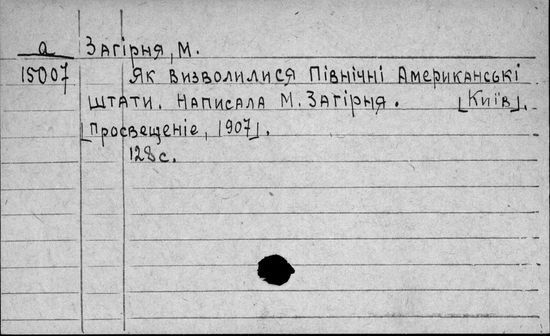 а Загірня, М.
15007 Як визволилися Північні Американські
штати. Написала М. Загірня. [Київ],
[Просвещеніе, 1907].
128 с.